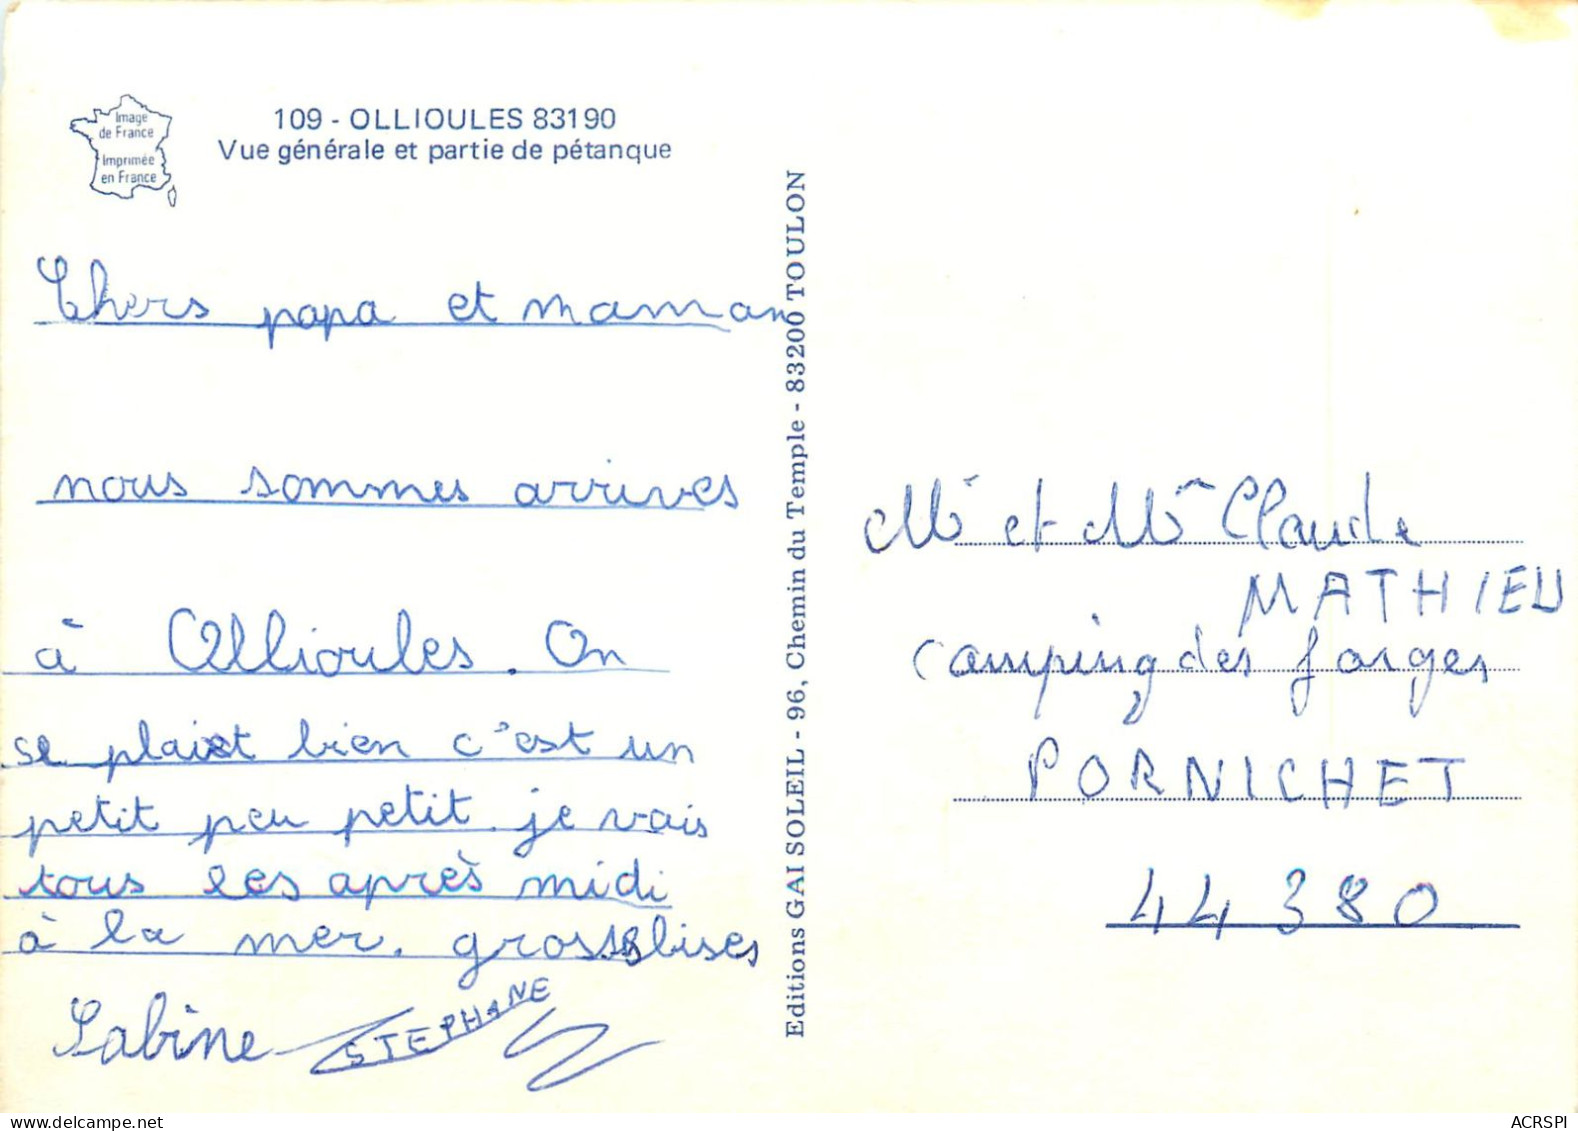 Image
de France
Imprimée
en France
109 - OLLIOULES 83190
Vue générale et partie de pétanque
Chers papa et maman
nous sommes arrives
à Ollioules. On
se plaist bien c'est un
petit peu petit. je vais
tous les après midi
à la mer. grosses bises
Sabine STEPHANE
Editions GAI SOLEIL - 96, Chemin du Temple - 83200 TOULON
Mr et Mme Claude
MATHIEU
Camping des forges
PORNICHET
44 380
delcampe.net
ACRSPI